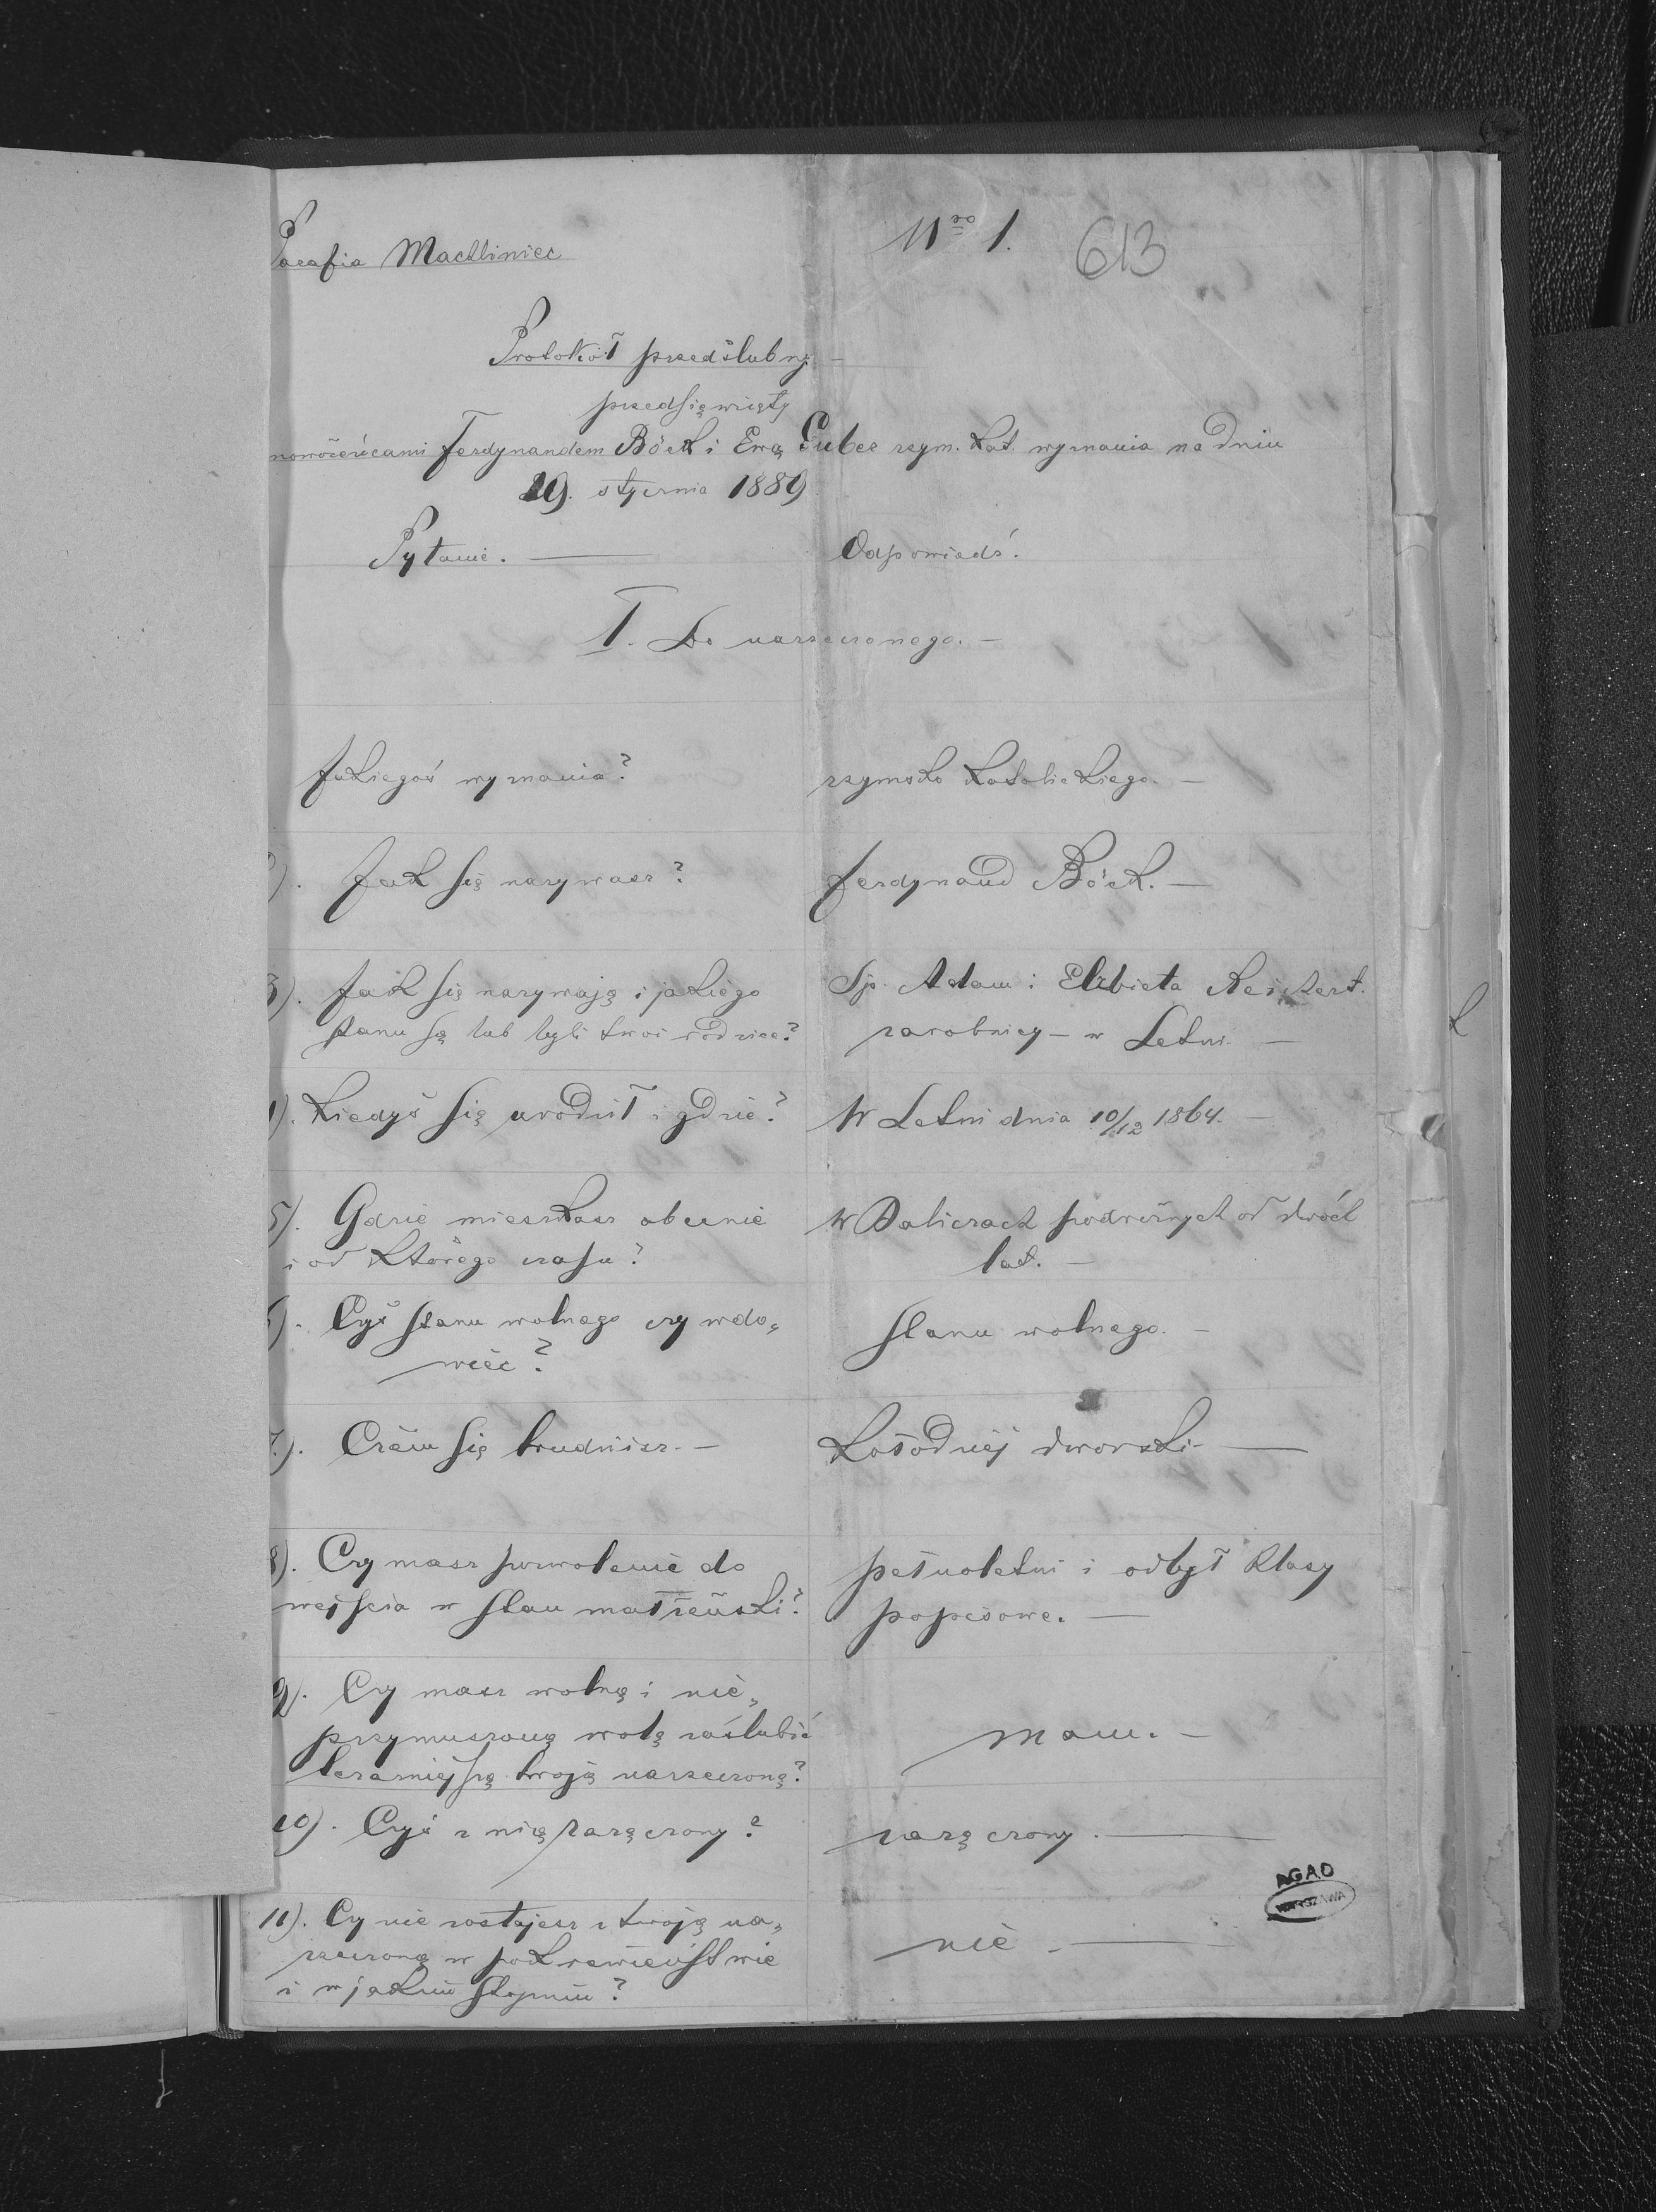 Parafia Machliniec
Nro 1.
613
Protokół przedślubny.
przedsięwzięty
nowożeńcami Ferdynandem Böck i Ewą Huber rzym. kat. wyznania na dniu
29. stycznia 1889
Pytanie.
Odpowiedź.
I. Do narzeczonego.
Jakiegoś wyznania?
rzymsko katolickiego.
Jak się nazywasz?
Ferdynand Böck.
3). Jak się nazywają i jakiego
stanu są lub byli twoi rodzice?
Śp. Adam i Elżbieta Reichert.
zarobnicy – w Letni.
Kiedyś się urodził i gdzie?
W Letni dnia 10/12 1864.
5). Gdzie mieszkasz obecnie
i od którego czasu?
W Daliczach podróżnych od dwóch
lat.
6). Cyś stanu wolnego czy wdo„
wiec?
stanu wolnego.
7.). Czém się trudnisz.
Kołodziéj dworski
8). Czy masz pozwolenie do
wejścia w stan małżeński?
pełnoletni i odbył klasy
popisowe.
9). Czy masz wolną i nie„
przymuszoną wolę zaślubić
terazniejszą twoją narzeczoną?
mam.
10). Czyś z nią zaręczony?
zaręczony.
11). Cy nie zostajesz z twoją na„
rzeczoną w pokrewieństwie
i w jakim stopniu?
nie
AGAD
WARSZAWA